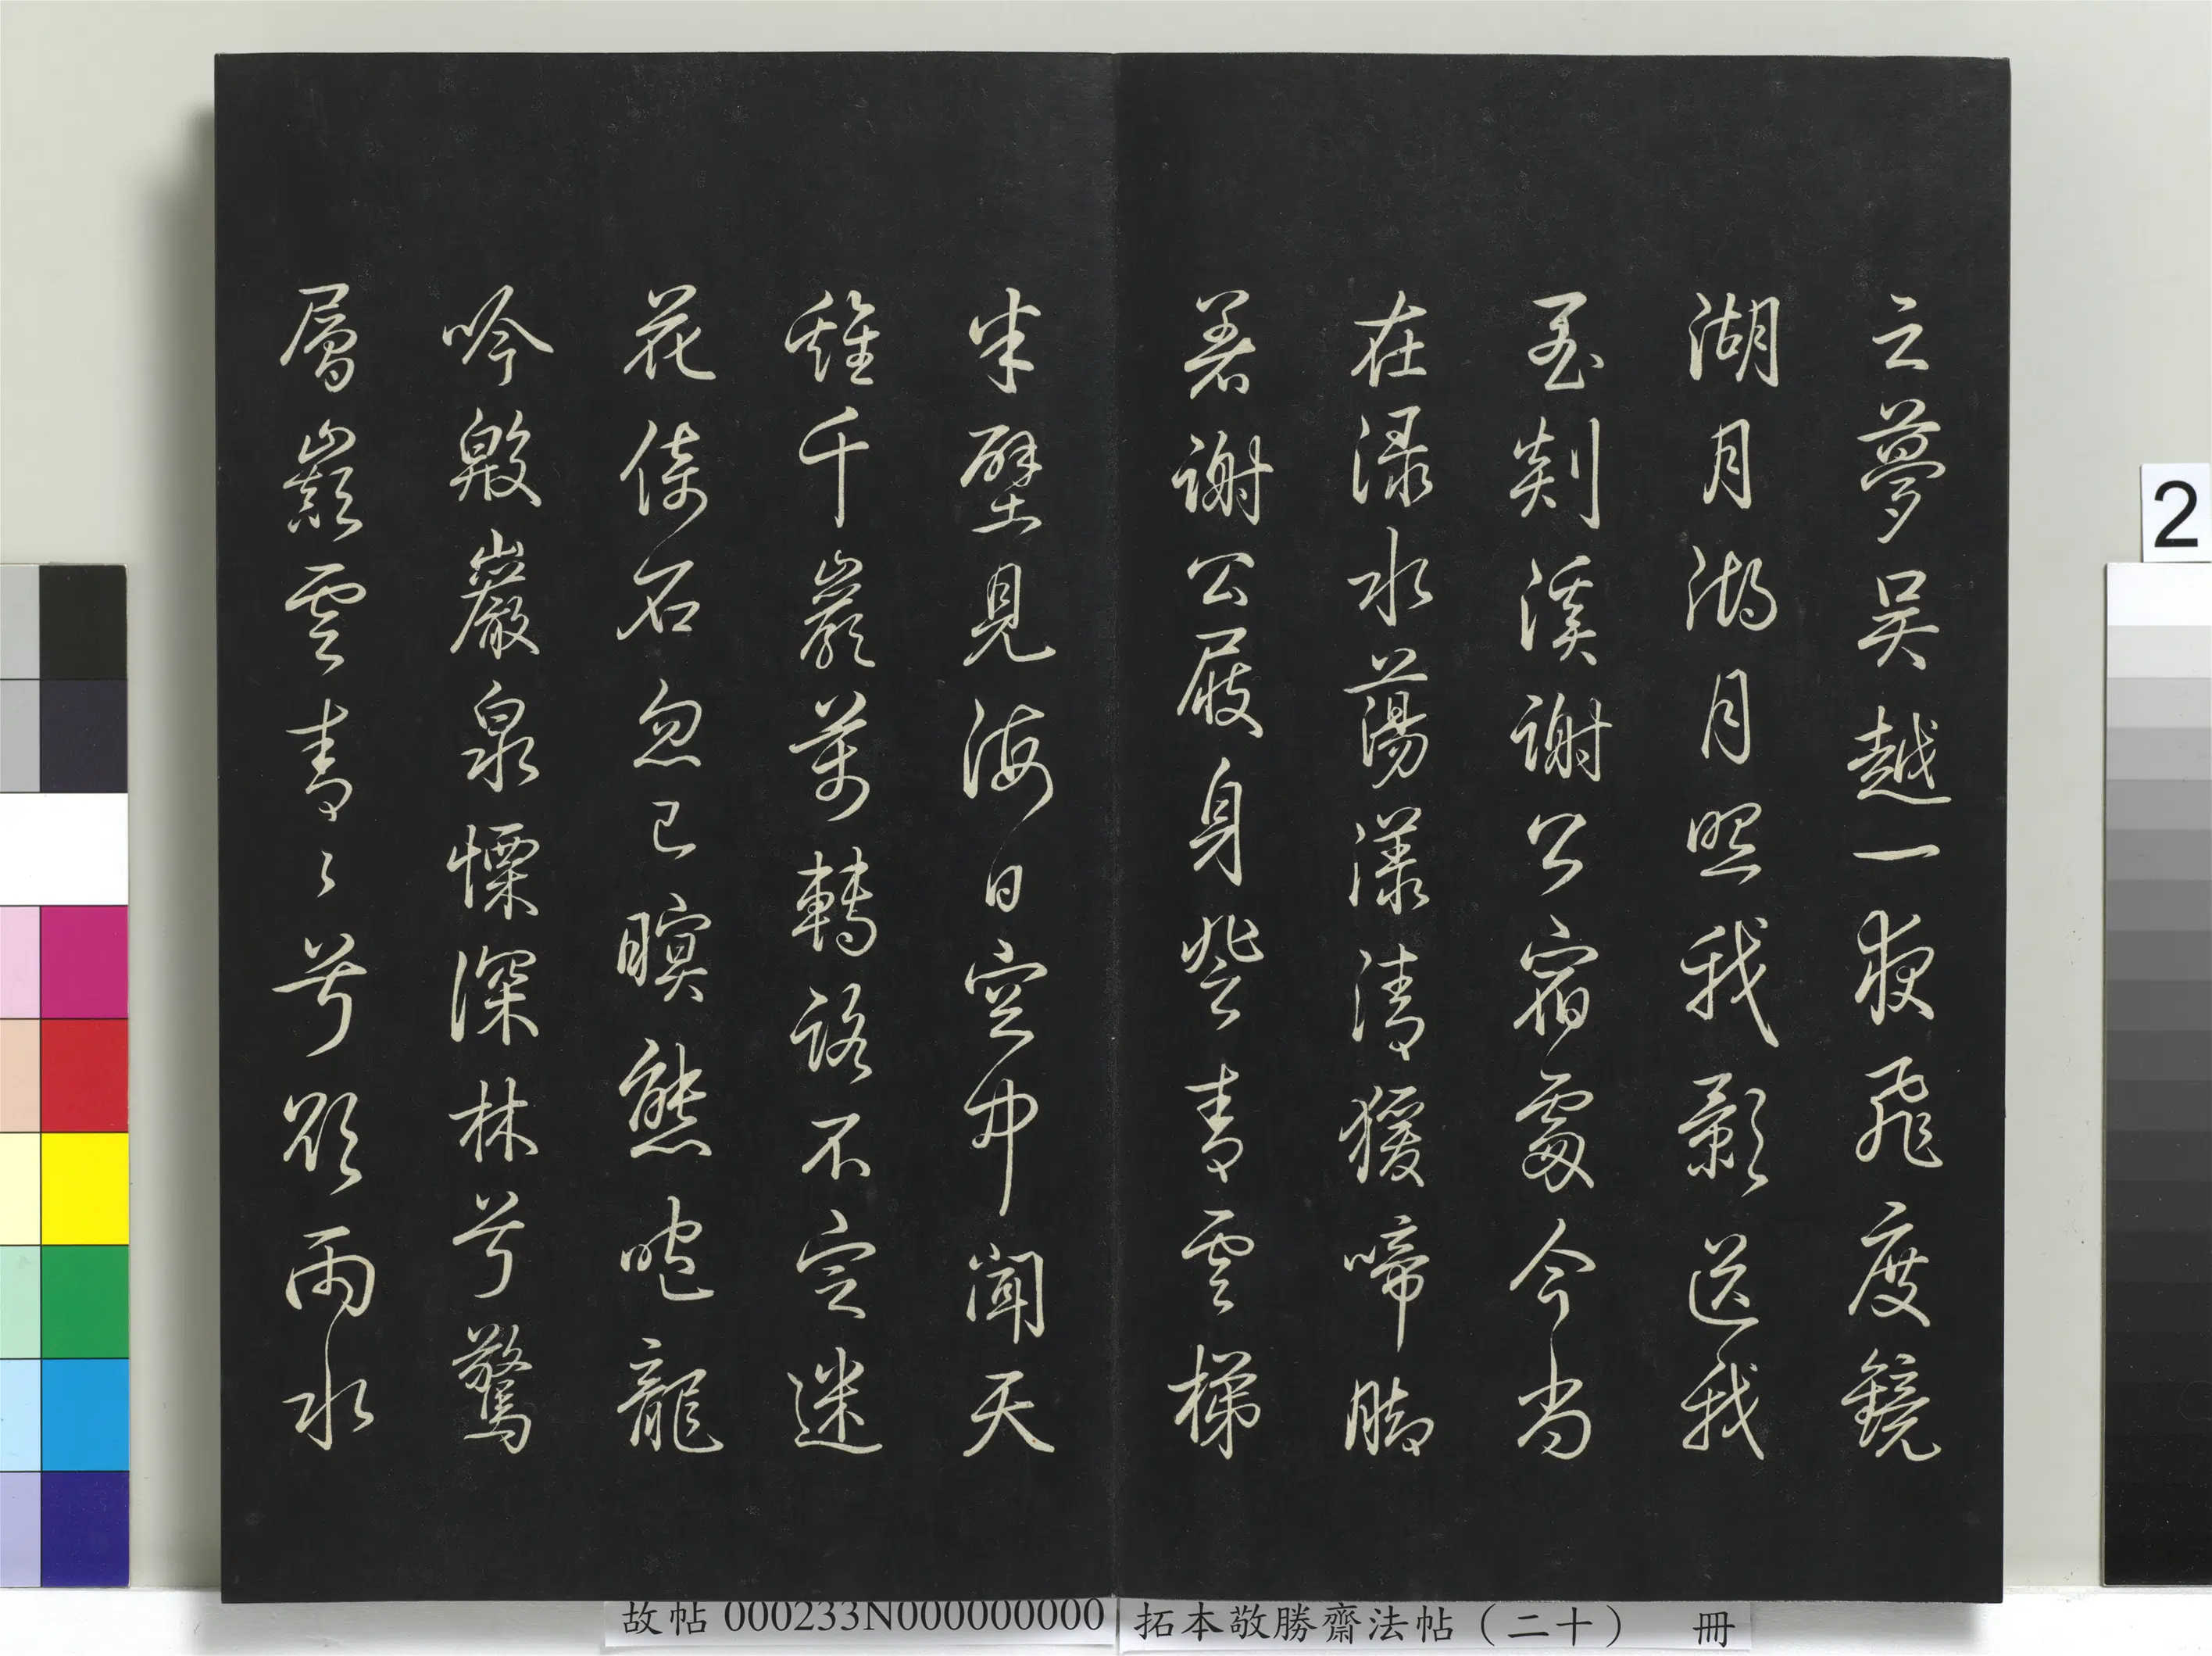 之夢吳越一夜飛度鏡
湖月湖月照我影送我
至剡溪謝公宿處今尚
在渌水蕩漾清猨啼脚
著謝公屐身登青雲梯
半壁見海日空中聞天
雞千巖萬轉路不定迷
花倚石忽已暝熊咆龍
吟殷巖泉慄深林兮驚
層巔雲青々兮欲雨水
2
故帖 000233N000000000
拓本敬勝齋法帖（二十） 冊